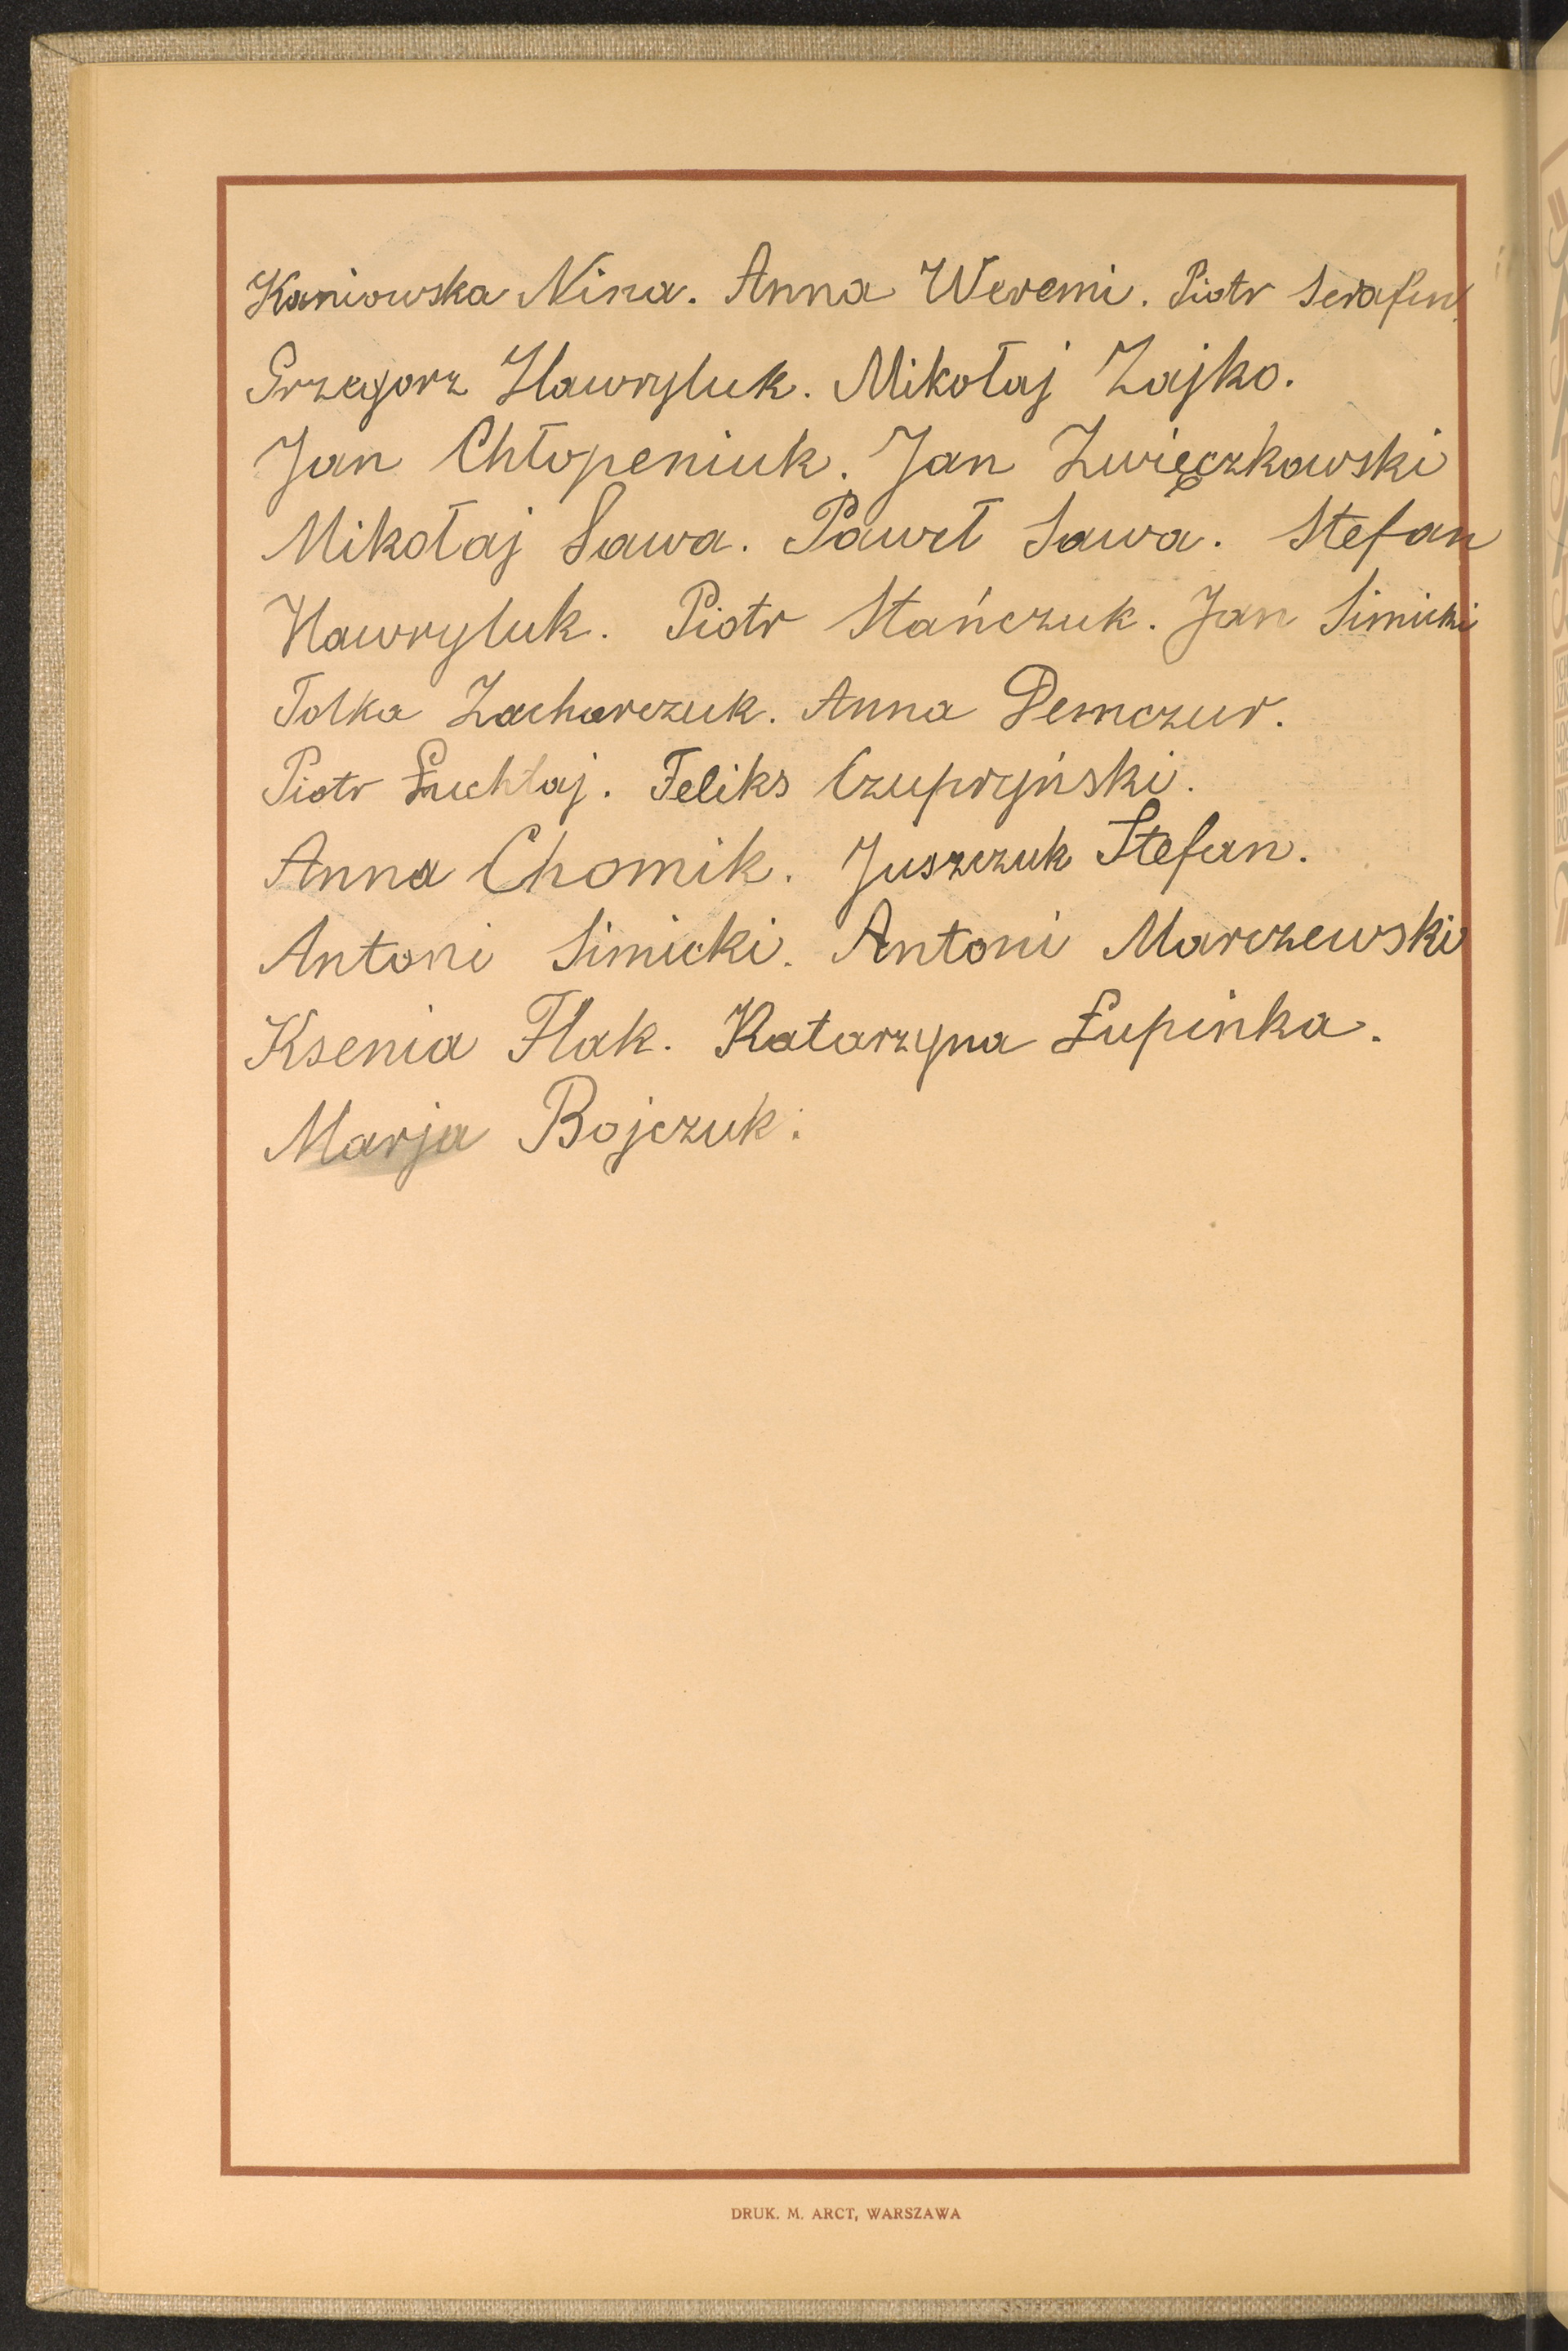 Kaniowska Nina. Anna Weremi. Piotr Serafin
Grzegorz Hawryluk. Mikołaj Zajko.
Jan Chłopeniuk. Jan Zwięczkowski
Mikołaj Sawa. Paweł Sawa. Stefan
Hawryluk. Piotr Stańczuk. Jan Simicki
Tolka Zacharczuk. Anna Demczur.
Piotr Łuchtaj. Feliks Czupryński.
Anna Chomik. Juszczuk Stefan.
Antoni Simicki. Antoni Marczewski
Ksenia Flak. Katarzyna Łupinka.
Marja Bojczuk.
DRUK. M. ARCT, WARSZAWA